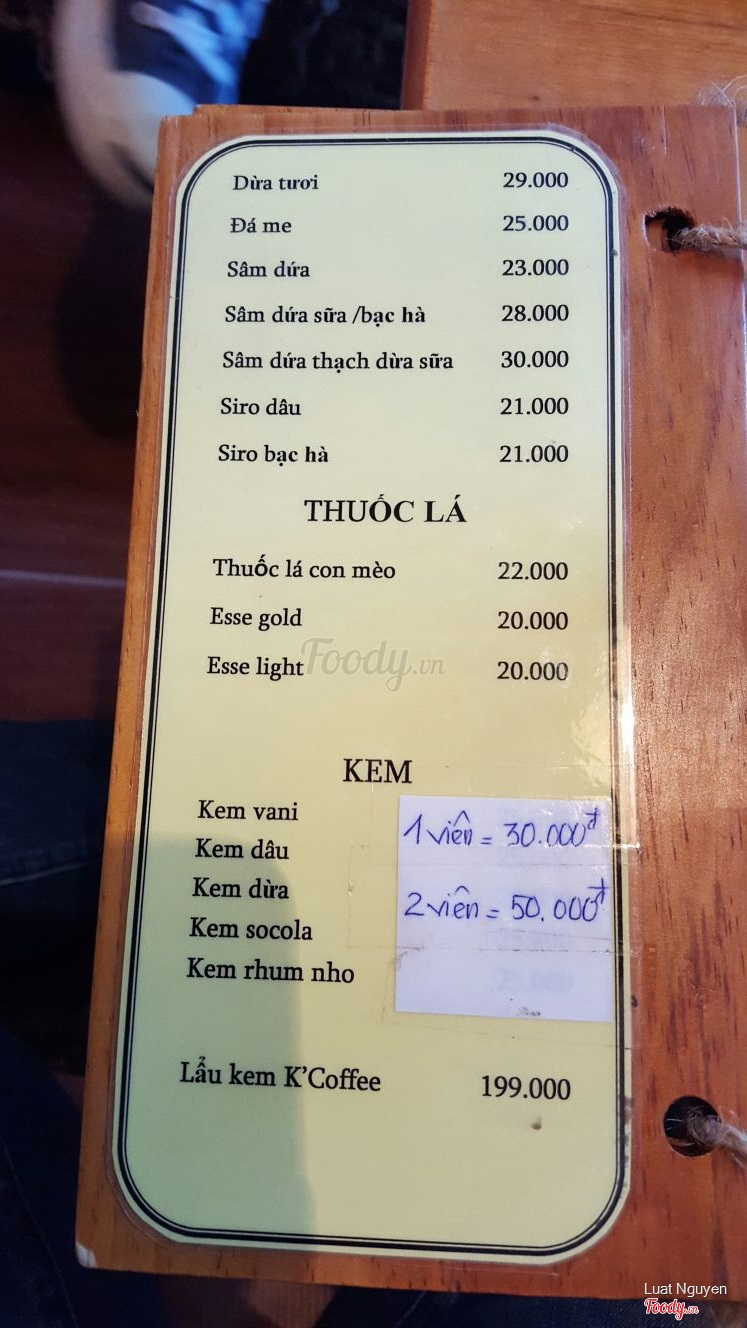 Dừa tươi 29.000
Đá me 25.000
Sâm dứa 23.000
Sâm dứa sữa /bạc hà 28.000
Sâm dứa thạch dừa sữa 30.000
Siro dâu 21.000
Siro bạc hà 21.000
THUỐC LÁ
Thuốc lá con mèo 22.000
Esse gold 20.000
Esse light 20.000
Foody.vn
KEM
Kem vani
Kem dâu
Kem dừa
Kem socola
Kem rhum nho
1 viên = 30.000đ
2 viên = 50.000đ
Lẩu kem K'Coffee 199.000
Luat Nguyen
Foody.vn